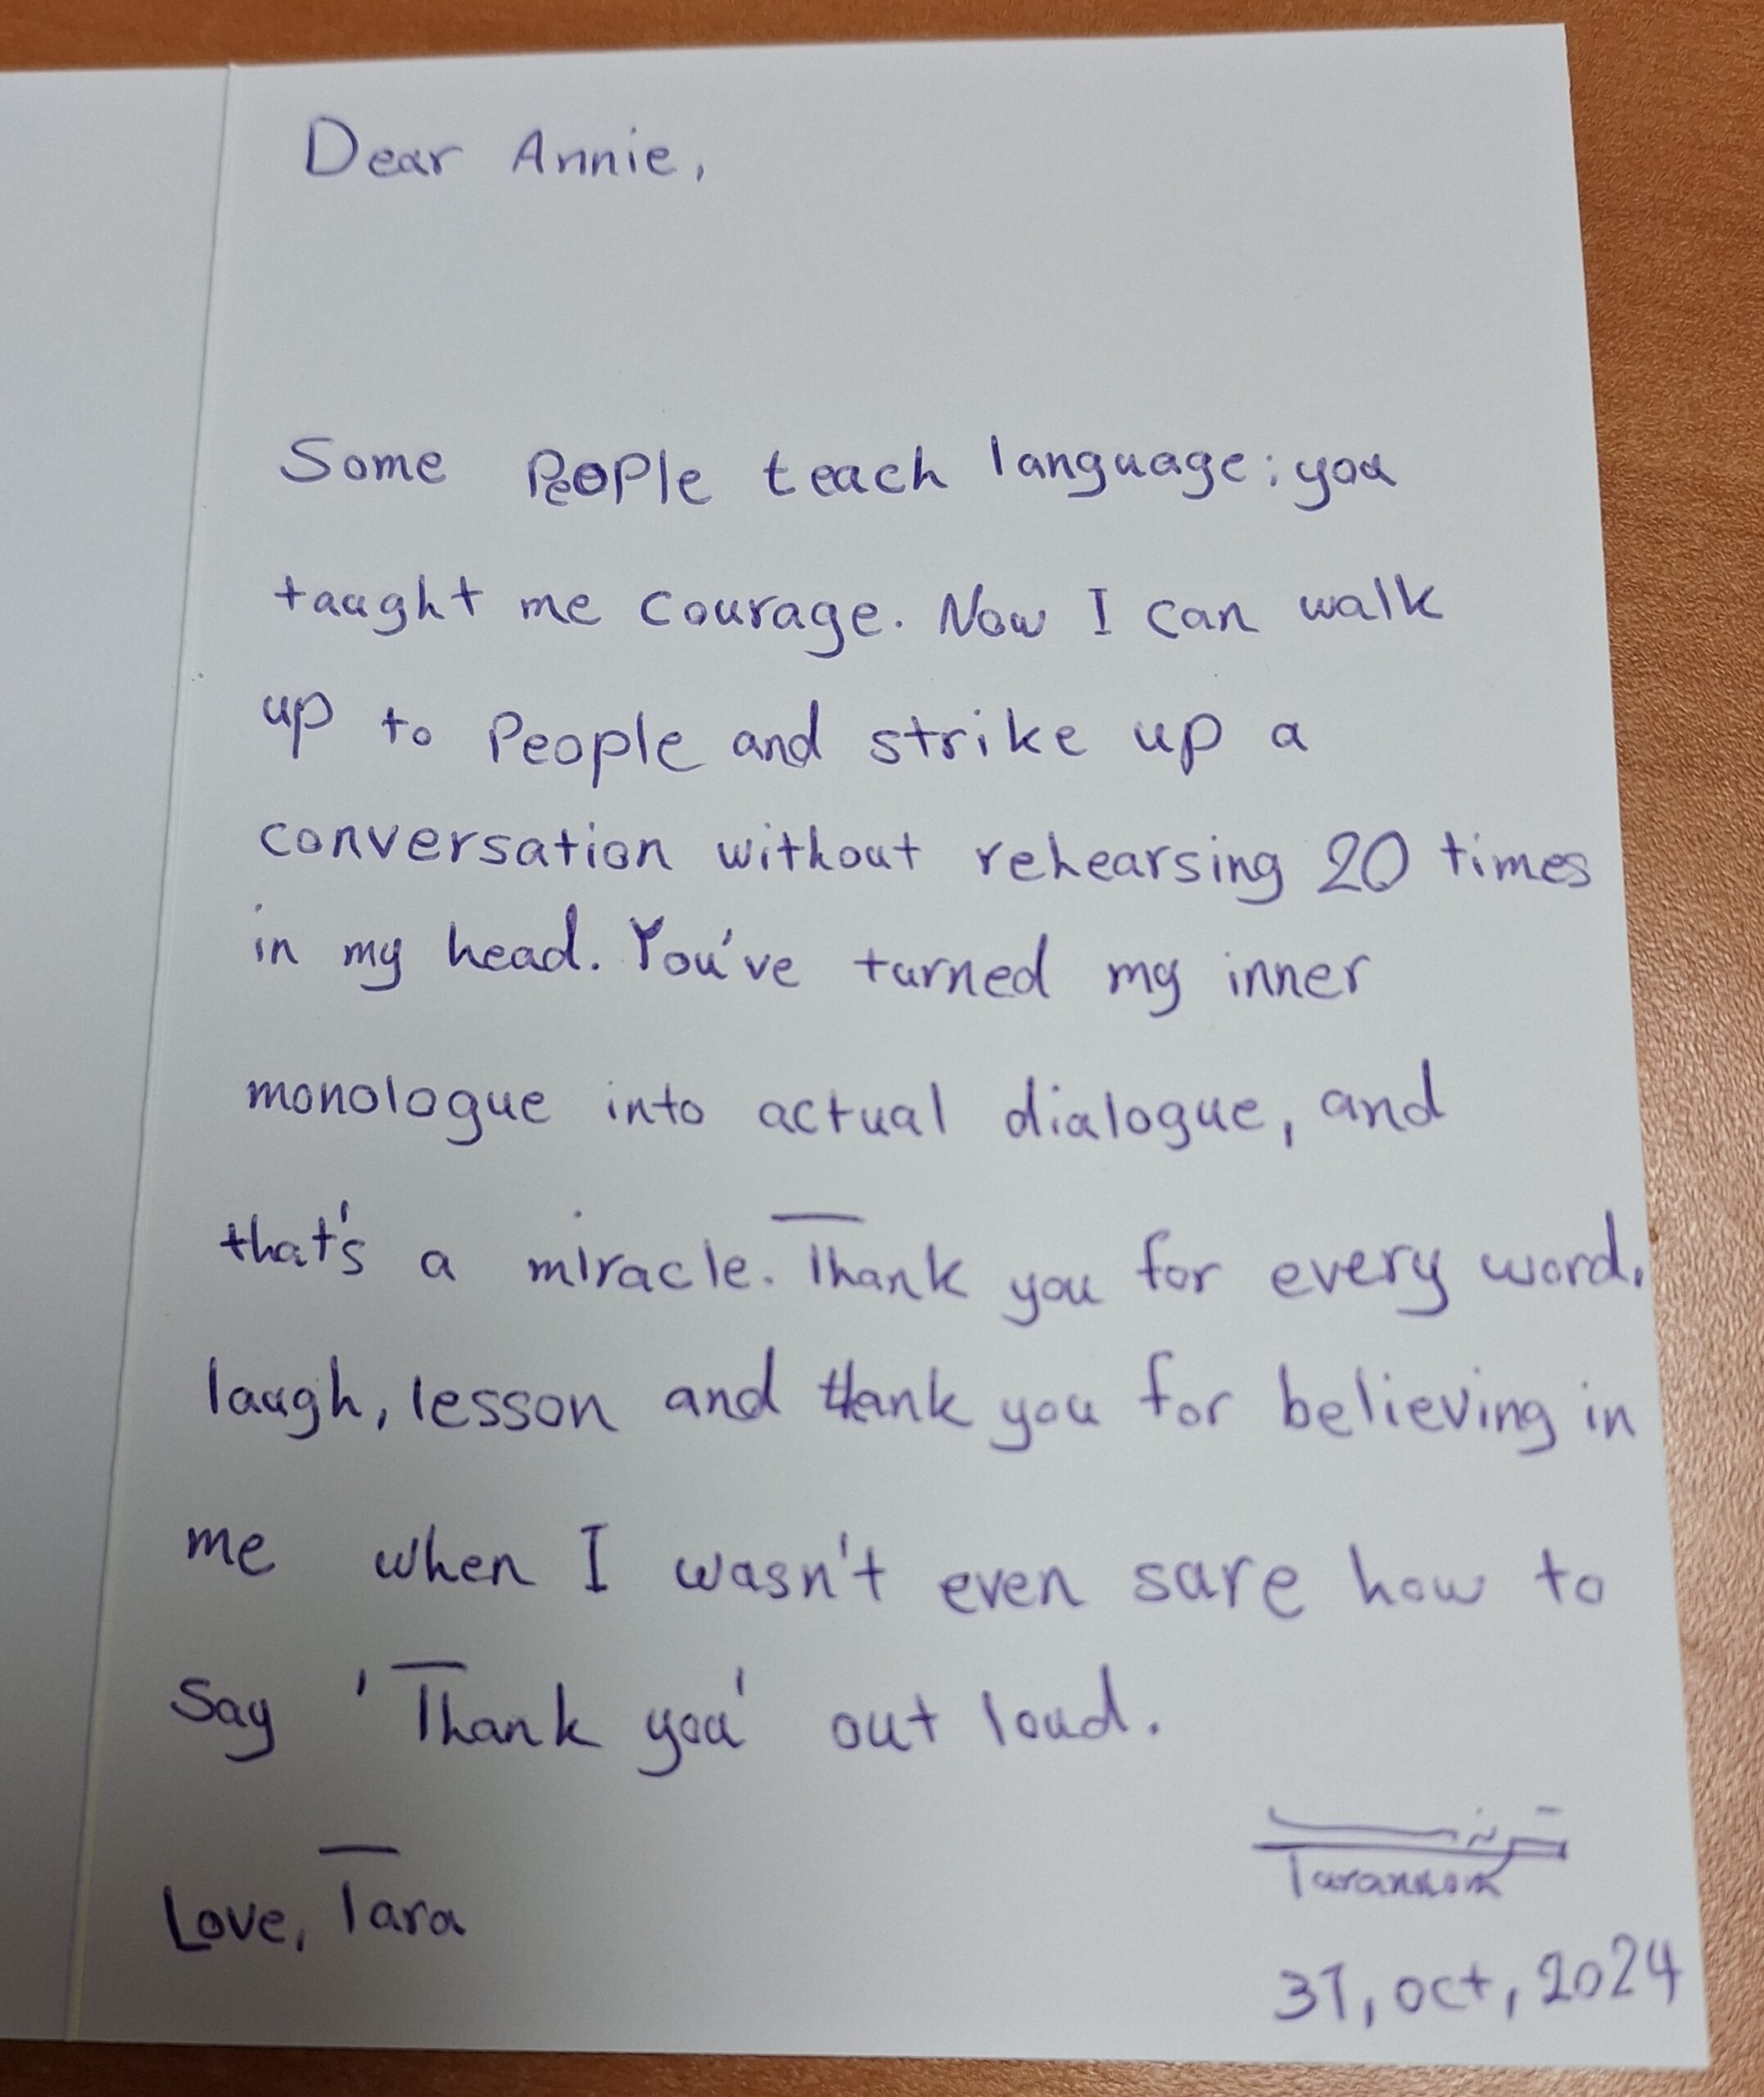 Dear Annie,
Some People teach language; you
taught me courage. Now I can walk
up to People and strike up a
conversation without rehearsing 20 times
in my head. You've turned my inner
monologue into actual dialogue, and
that's a miracle. Thank you for every word,
laugh, lesson and thank you for believing in
me when I wasn't even sure how to
Say 'Thank you' out loud.
Love, Tara
Tarannom
31, oct, 2024